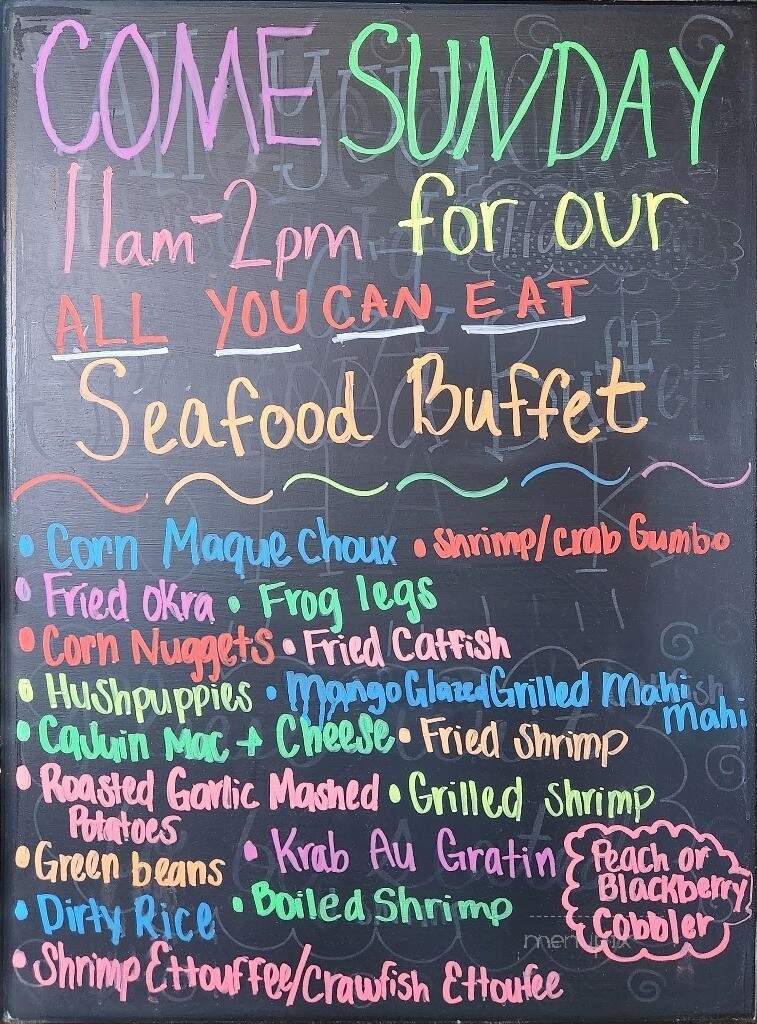 COME SUNDAY
11am-2pm for our
ALL YOU CAN EAT
Seafood Buffet
• Corn Maque Choux • Shrimp/Crab Gumbo
• Fried Okra • Frog legs
• Corn Nuggets • Fried Catfish
• Hushpuppies • Mango Glazed Grilled Mahi
Mahi
• Cajuin Mac + Cheese • Fried Shrimp
• Roasted Garlic Mashed • Grilled Shrimp
Potatoes
• Green beans • Krab Au Gratin
Peach or
Blackberry
Cobbler
• Dirty Rice • Boiled Shrimp
menupix
• Shrimp Ettouffee/Crawfish Ettoufee